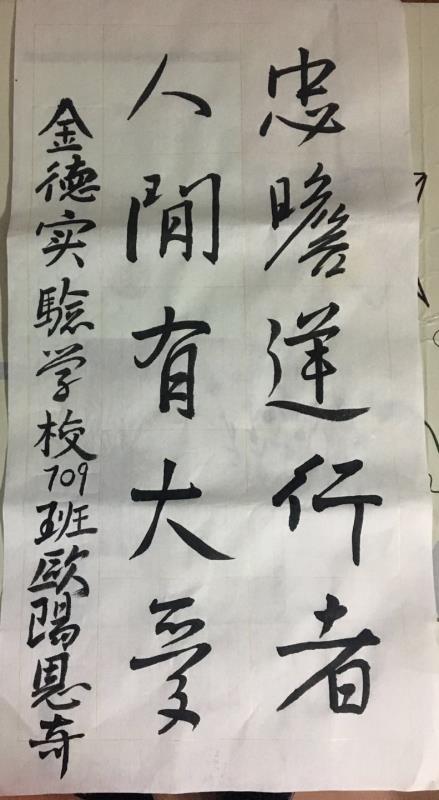 忠瞻逆行者
人間有大愛
金德实驗学校709班歐陽恩奇